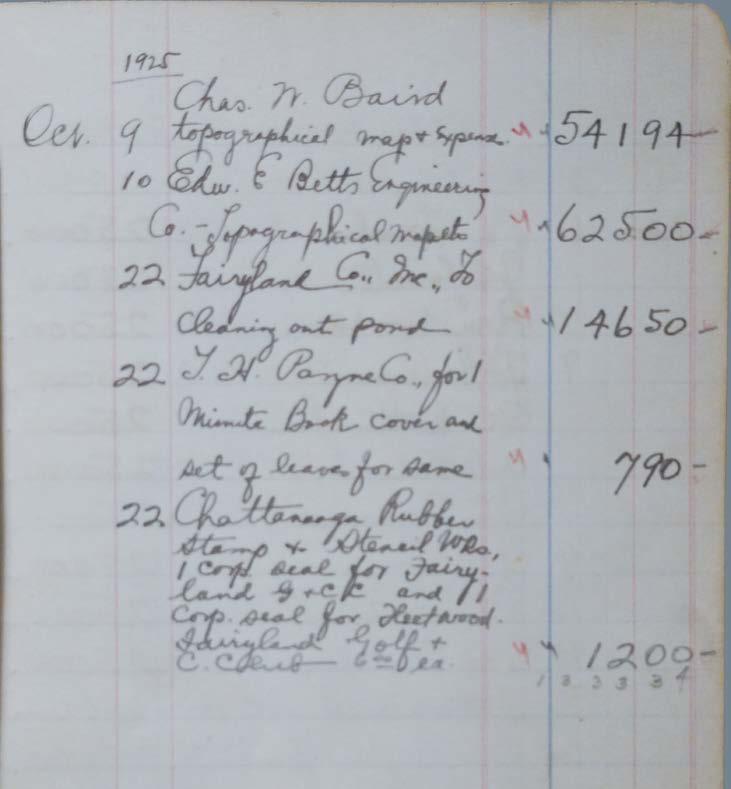 1925
Chas. W. Baird
Oct. 9 topographical map & Expense. 541 94
10 Edw. E Betts Engineering
Co. - Topographical Map etc 625 00
22 Fairyland Co., Inc., To
Cleaning out pond 146 50
22 T. H. Payne Co., for 1
Minute Book cover and
set of leaves for same 7 90
22 Chattanooga Rubber
Stamp & Stencil Wks,
1 corp. seal for Fairy-
land G & C C and 1
Corp. seal for Fleetwood.
Fairyland Golf &
C. Club 6 00 ea. 12 00
1 3 3 3 3 4